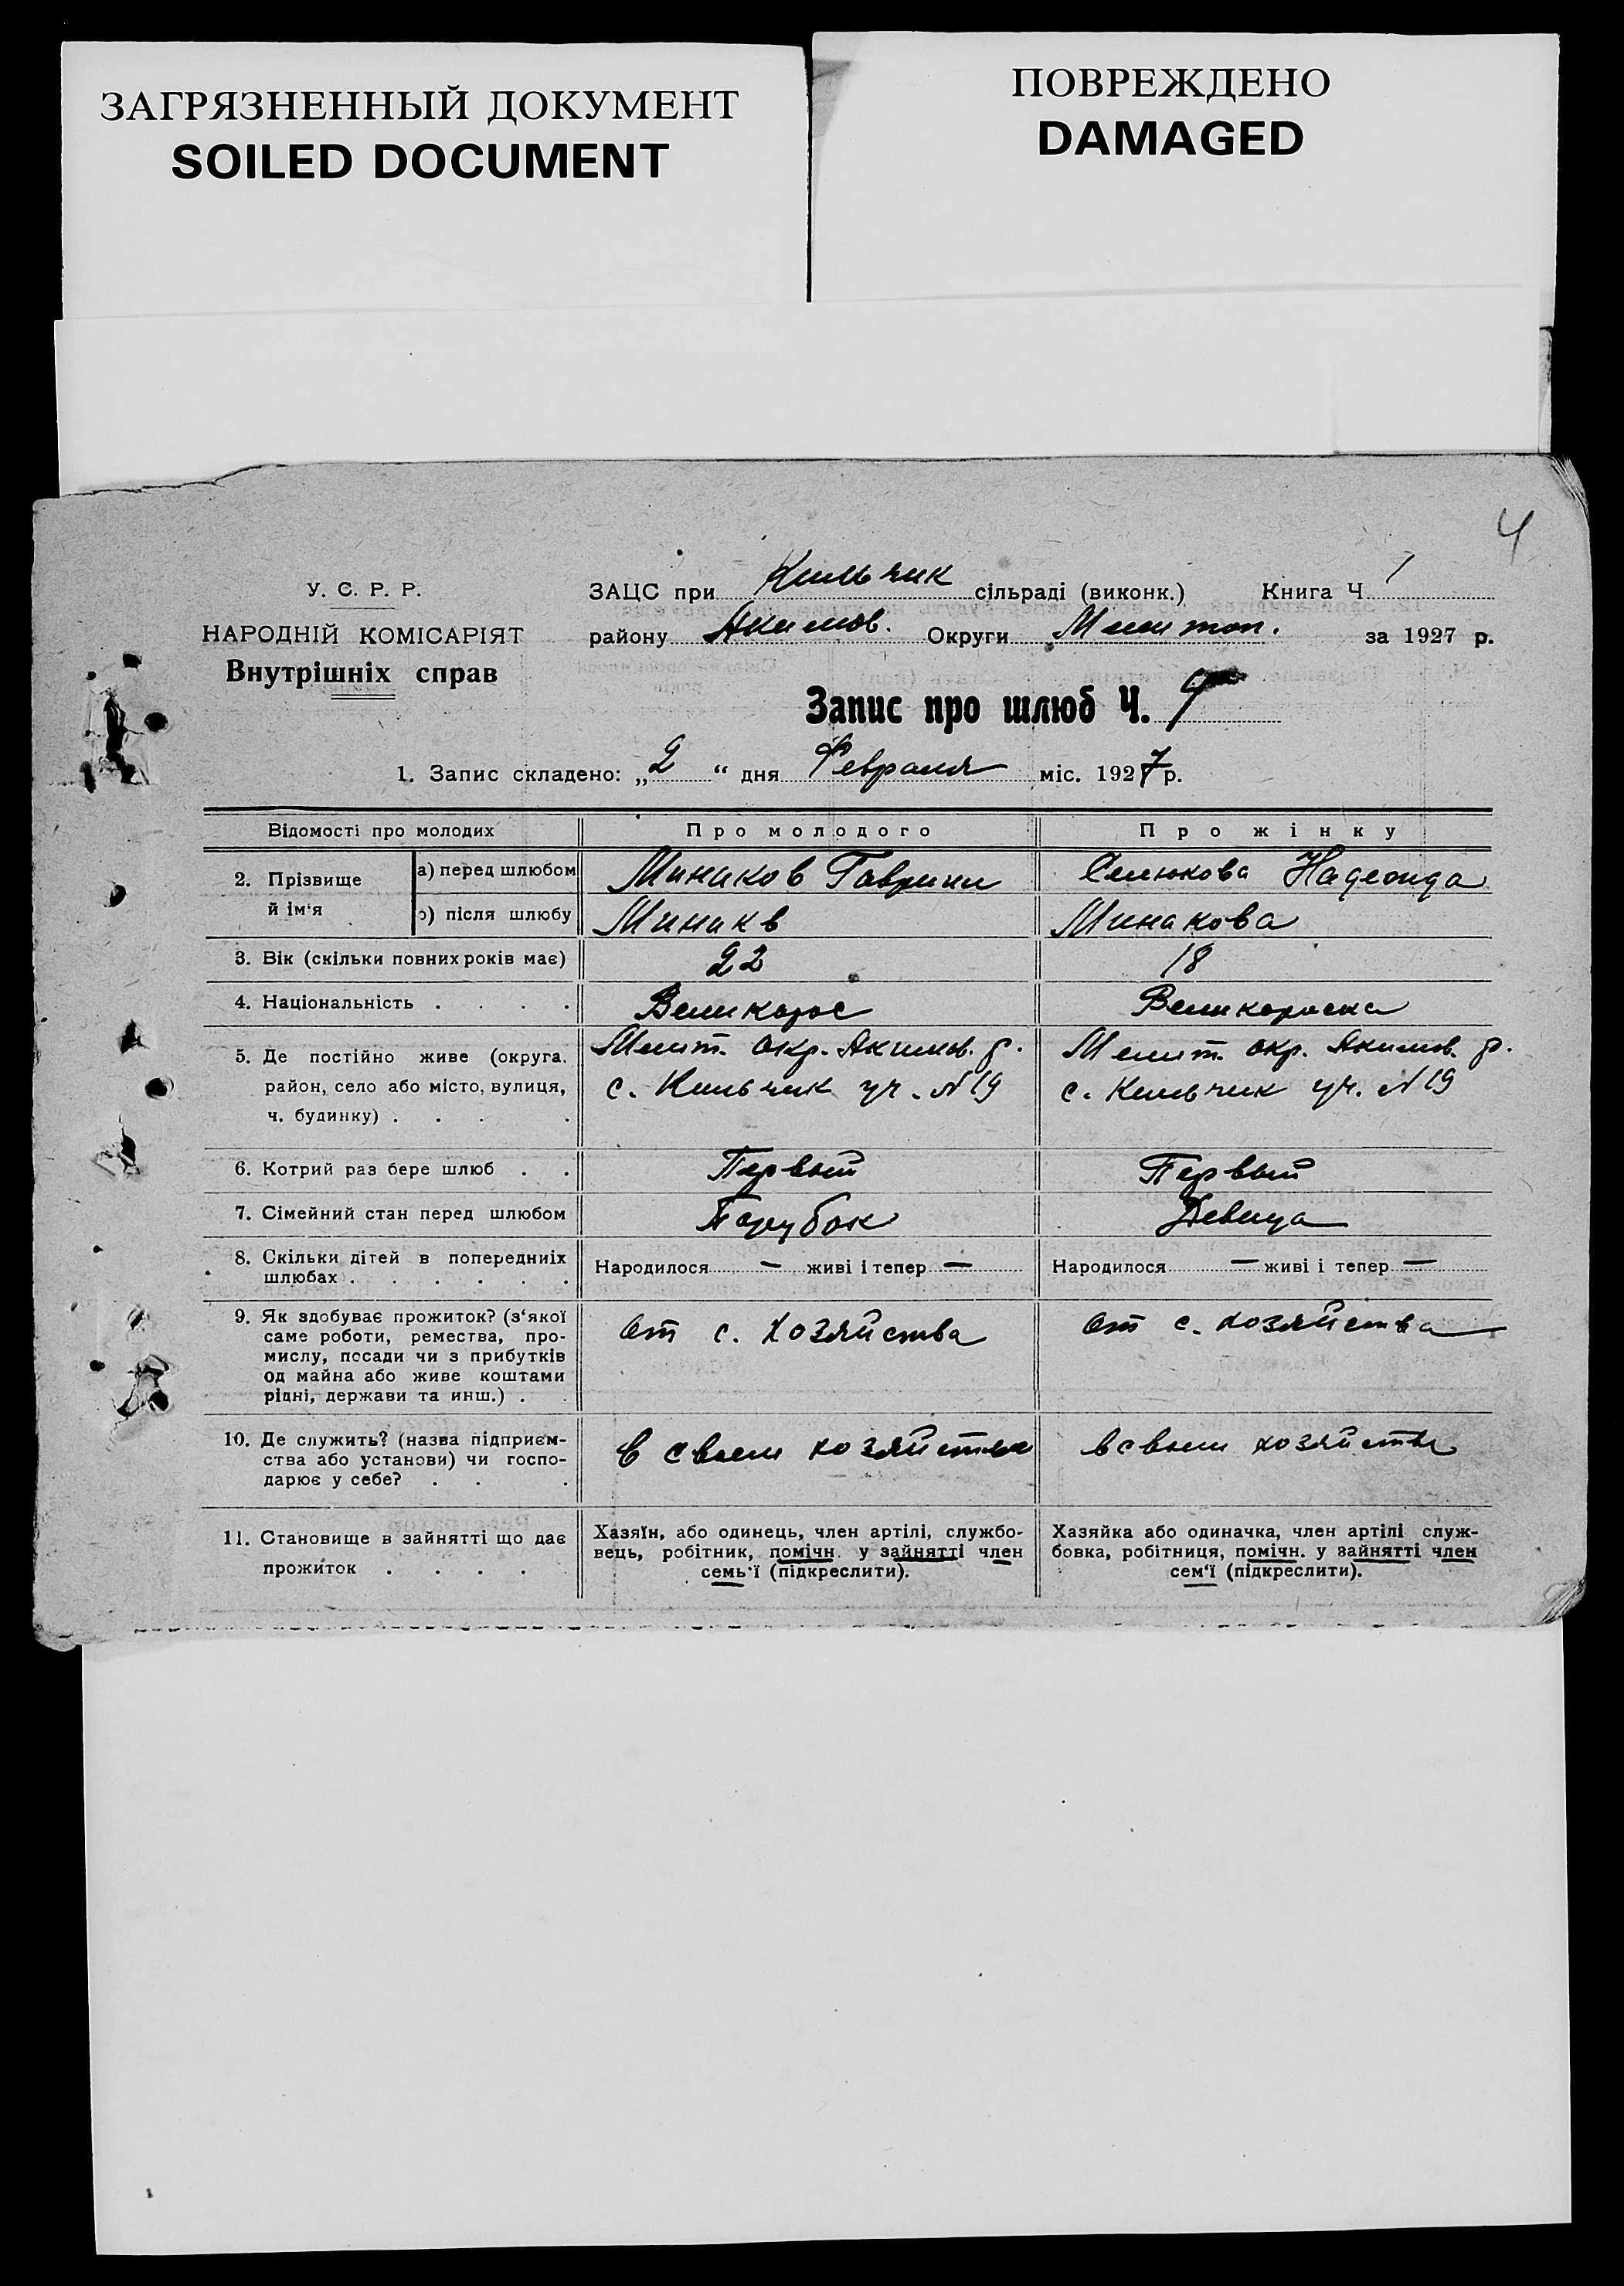 ЗАГРЯЗНЕННЫЙ ДОКУМЕНТ
SOILED DOCUMENT
ПОВРЕЖДЕНО
DAMAGED
4
У. С. Р. Р.
НАРОДНІЙ КОМІСАРІЯТ
Внутрішніх справ
ЗАЦС при Кильчик сільраді (виконк.) Книга Ч. 1
району Акимов. Округи Мелитоп. за 1927 р.
Запис про шлюб Ч.
1. Запис складено: „2“ дня Февраля міс. 1927 р.
Відомості про молодих Про молодого Про жінку
2. Прізвище й ім‘я а) перед шлюбом Минаков Гаврил Селюкова Надежда
б) після шлюбу Минакв Минакова
3. Вік (скільки повних років має) 22 18
4. Національність . . . . Великорос Великороска
5. Де постійно живе (округа, Мелит. окр. Акимов. р. Мелит. окр. Акимов. р.
район, село або місто, вулиця, с. Кильчик уч. №19 с. Кильчик уч. №19
ч. будинку) . . . .
6. Котрий раз бере шлюб . . Первый Первый
7. Сімейний стан перед шлюбом Парубок Девица
8. Скільки дітей в попередниіх шлюбах . . . . . . Народилося — живі і тепер — Народилося — живі і тепер —
9. Як здобуває прожиток? (з‘якої
саме роботи, ремества, про- От с. хозяйства От с. хозяйства
мислу, посади чи з прибутків
од майна або живе коштами
рідні, держави та инш.) . .
10. Де служить? (назва підприєм- В своем хозяйстве в своем хозяйстве
ства або установи) чи госпо-
дарює у себе? . . .
11. Становище в зайнятті що дає
прожиток . . . .
Хазяїн, або одинець, член артілі, службо-
вець, робітник, помічн. у зайнятті член
семь‘ї (підкреслити).
Хазяйка або одиначка, член артілі служ-
бовка, робітниця, помічн. у зайнятті член
сем‘ї (підкреслити).